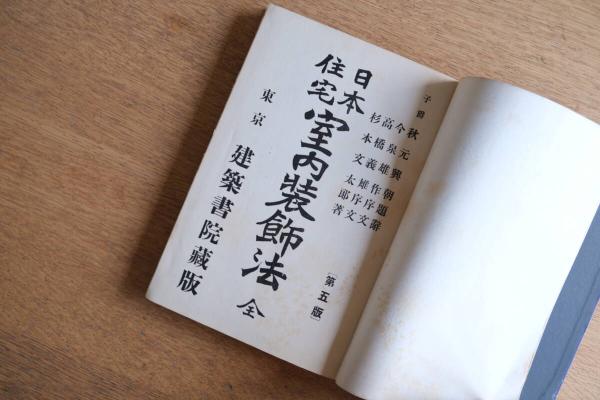 子爵 秋元興朝題辭
今泉雄作序文
高橋義雄序文
杉本文太郎著
[第五版]
日本
住宅
室内裝飾法 全
東京 建築書院藏版